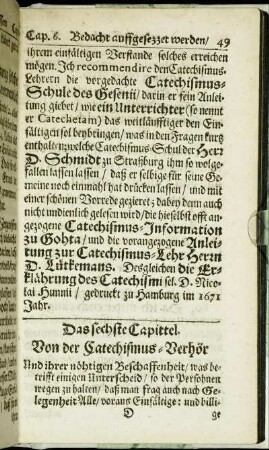 Cap. 6. Bedacht auffgesezzet werden / 49
ihrem einfältigen Verstande solches erreichen
mögen. Ich recommendire den Catechismus-
Lehrern die vorgedachte Catechismus-
Schule des Gesenii / darin er fein Anlei
tung giebet / wie ein Unterrichter (so nennt
er Catechetam) das weitläufftiger den Ein-
fältigen sol beybringen / was in den Fragen kurtz
enthalten; welche Catechismus-Schul der Herr
D. Schmidt zu Straßburg ihm so wolge-
fallen lassen / daß er selbige für seine Ge-
meine noch einmahl hat drücken lassen / und mit
einer schönen Vorrede gezieret; dabey denn auch
nicht undienlich gelesen wird / die hieselbst offt an-
gezogene Catechismus-Information
zu Gohta / und die vorangezogene Anlei-
tung zur Catechismus-Lehr Herrn
D. Lütkemans. Desgleichen die Er-
klährung des Catechismi sel. D. Nico-
lai Hunnii / gedruckt zu Hamburg im 1671
Jahr.
Das sechste Capittel.
Von der Catechismus-Verhör
Und ihrer nöhtigen Beschaffenheit / was be-
trifft einigen Unterscheid / so der Persohnen
wegen zu halten / daß man frag auch nach Ge-
legenheit Alle / voraus Einfältige: und billi-
D ge